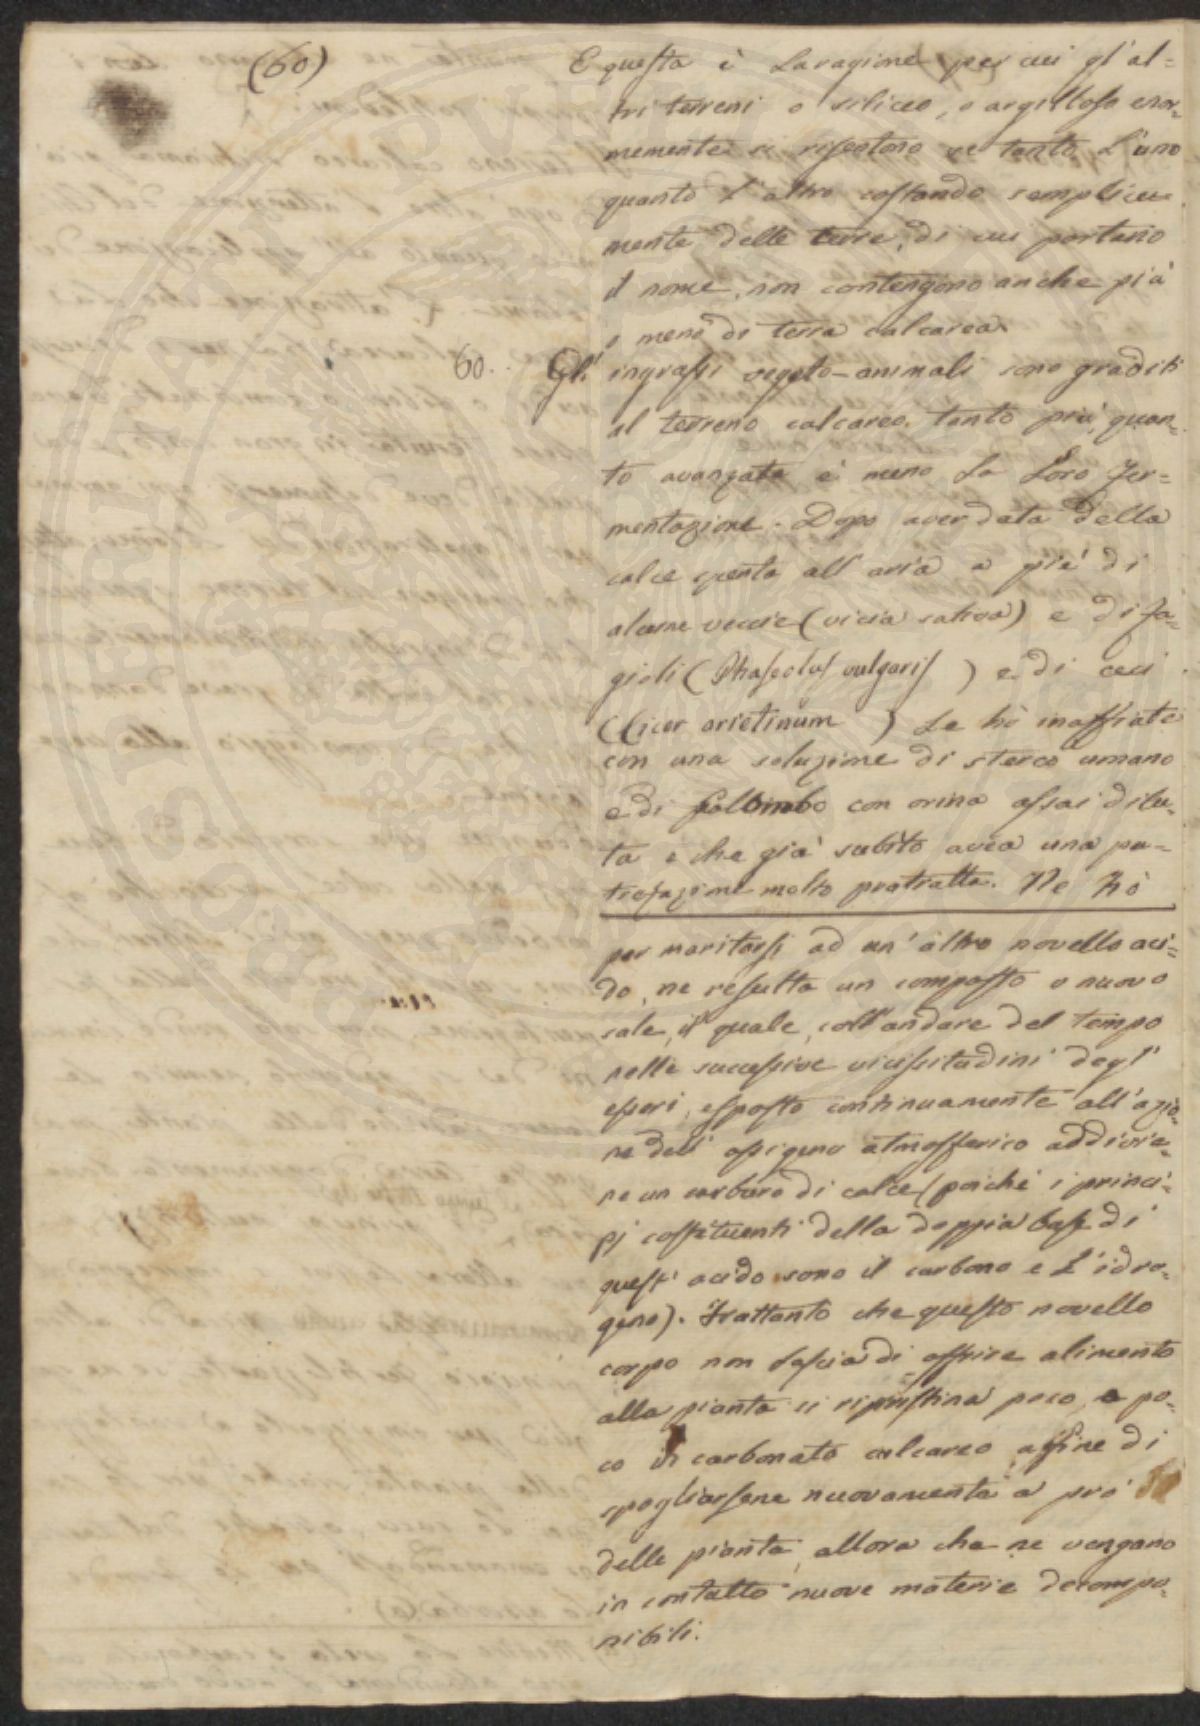 (60)
E questa è la ragione per cui gl'al=
tri terreni o siliceo, o argilloso enor=
memente si risentono se tanto l'uno
quanto l'altro costando semplice
mente delle terre, di cui portano
il nome, non contengono anche più
o meno di terra calcarea.
60. Gl'ingrassi vegeto-animali sono graditi
al terreno calcareo tanto più, quan=
to avanzata è meno la loro fer=
mentazione. Dopo aver data della
calce spenta all'aria a piè di
alcune veccie (vicia sativa) e di fa=
gioli (Phaseolus vulgaris) e di ceci
(Cicer arietinum) le hò inaffiate
con una soluzione di sterco umano
e di Colombo con orina assai dilu=
ta e che già subito avea una pu=
trefazione molto protratta. Ne hò
per maritarsi ad un'altro novello aci=
do, ne resulta un composto o nuovo
sale, il quale, coll'andare del tempo
nelle successive vicissitudini degl'
esseri, esposto continuamente all'azio=
ne dell'ossigeno atmosferico addivie=
ne un carburo di calce (poichè i princi=
pj costituenti della doppia base di
quest'acido sono il carbono e l'idro=
geno). Frattanto che questo novello
corpo non lascia di offrire alimento
alla pianta si ripristina poco a po=
co in carbonato calcareo affine di
spogliarsene nuovamente a prò
delle pianta, allora che ne vengano
in contatto nuove materie decompo=
nibili.